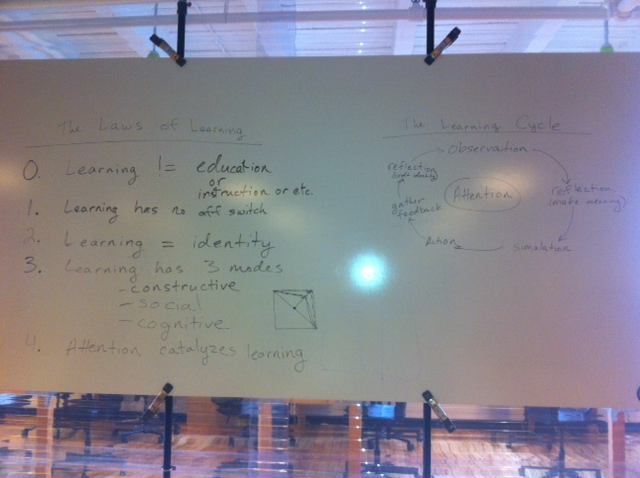 The Laws of Learning
0. Learning != education
or
instruction or etc.
1. Learning has no off switch
2. Learning = identity
3. Learning has 3 modes
- constructive
- social
- cognitive
4. Attention catalyzes learning
The Learning Cycle
Observation
reflection
(make meaning)
simulation
Action
gather
feedback
reflection
Attention